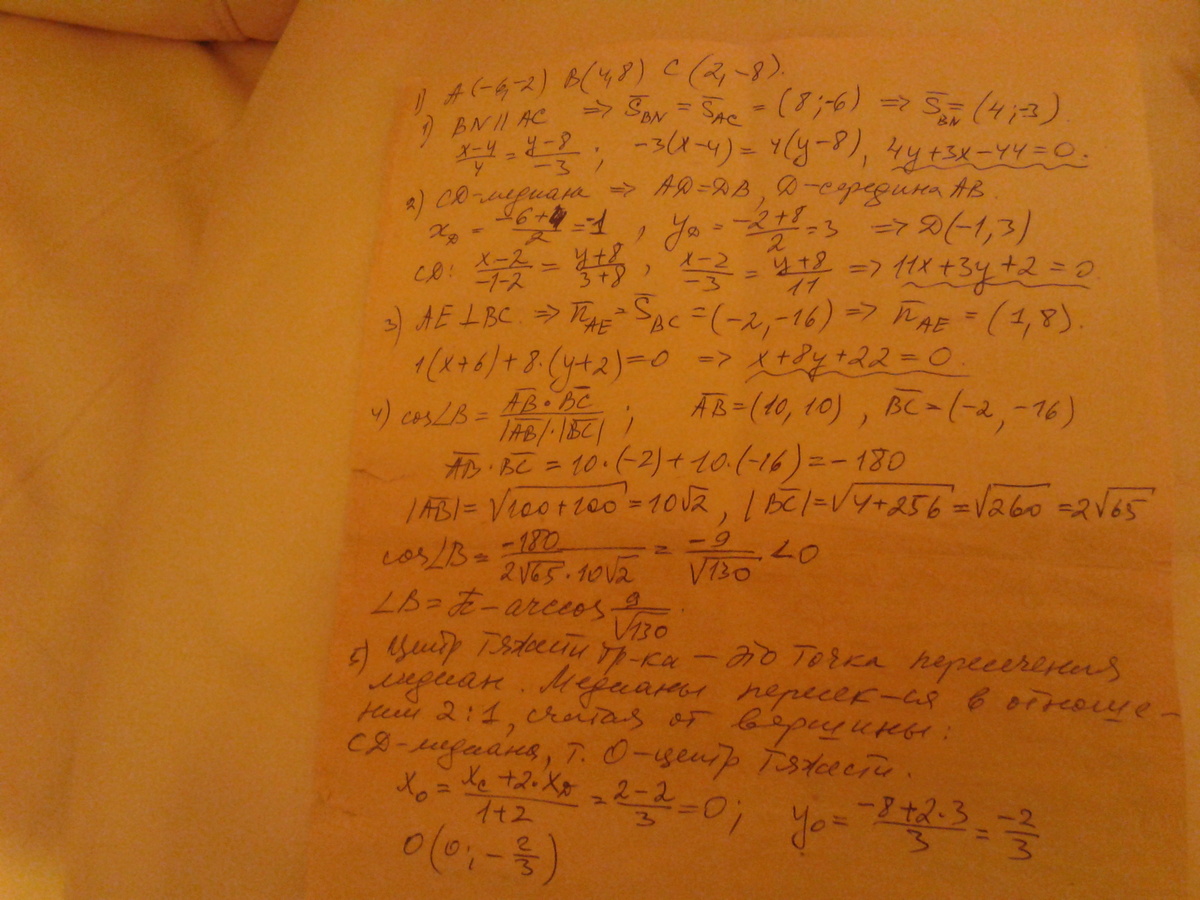 1) A(-6,-2) B(4,8) C(2,-8).
1) BN ∥ AC ⇒ S̄_BN = S̄_AC = (8;-6) ⇒ S̄_BN = (4;-3).
(x-4)/4 = (y-8)/-3 ; -3(x-4) = 4(y-8), 4y+3x-44=0.
2) CD-медиана ⇒ AD=DB, D-середина AB.
x_D = (-6+4)/2 = -1, y_D = (-2+8)/2 = 3 ⇒ D(-1,3)
CD: (x-2)/(-1-2) = (y+8)/(3+8), (x-2)/-3 = (y+8)/11 ⇒ 11x+3y+2=0
3) AE⊥BC. ⇒ n̄_AE = S̄_BC = (-2,-16) ⇒ n̄_AE = (1,8).
1(x+6)+8·(y+2)=0 ⇒ x+8y+22=0.
4) cos∠B = (A̅B̅·B̅C̅)/(|A̅B̅|·|B̅C̅|); A̅B̅=(10,10), B̅C̅=(-2,-16)
A̅B̅·B̅C̅=10·(-2)+10·(-16)=-180
|A̅B̅|=√(100+100)=10√2, |B̅C̅|=√(4+256)=√260=2√65
cos∠B = -180/(2√65·10√2) = -9/√130 <0
∠B=π-arccos 9/√130.
5) Центр тяжести тр-ка – это точка пересечения
медиан. Медианы пересек-ся в отноше-
нии 2:1, считая от вершины:
CD-медиана, т. О-центр тяжести.
x_0 = (x_C+2·x_D)/(1+2) = (2-2)/3 = 0; y_0 = (-8+2·3)/3 = -2/3
O(0;-2/3)